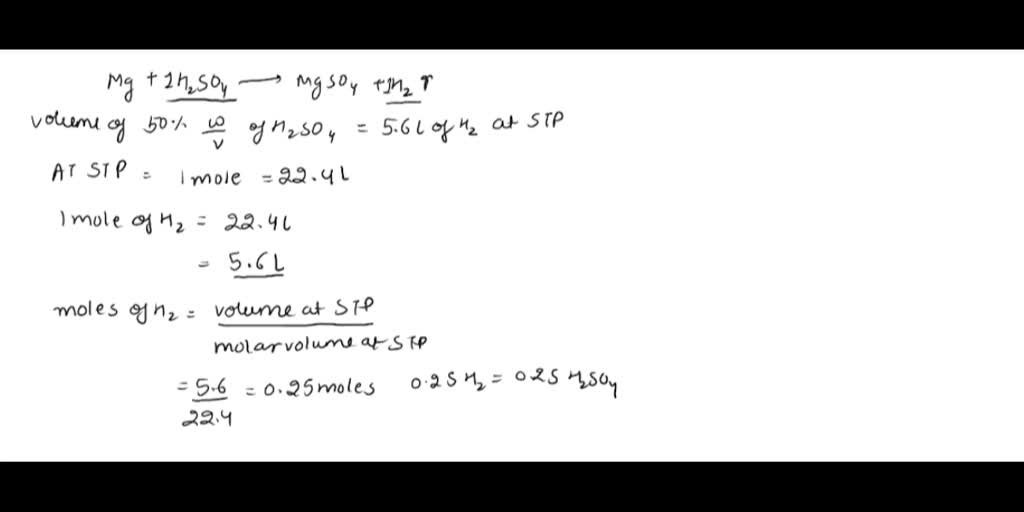 Mg + 1H₂SO₄ ⟶ MgSO₄ + 1H₂ ↑
volume of 50% w/v of H₂SO₄ = 5.6L of H₂ at STP
AT STP = 1 mole = 22.4L
1 mole of H₂ = 22.4L
= 5.6L
moles of H₂ = volume at STP / molar volume at STP
= 5.6 / 22.4 = 0.25 moles 0.25 H₂ = 0.25 H₂SO₄